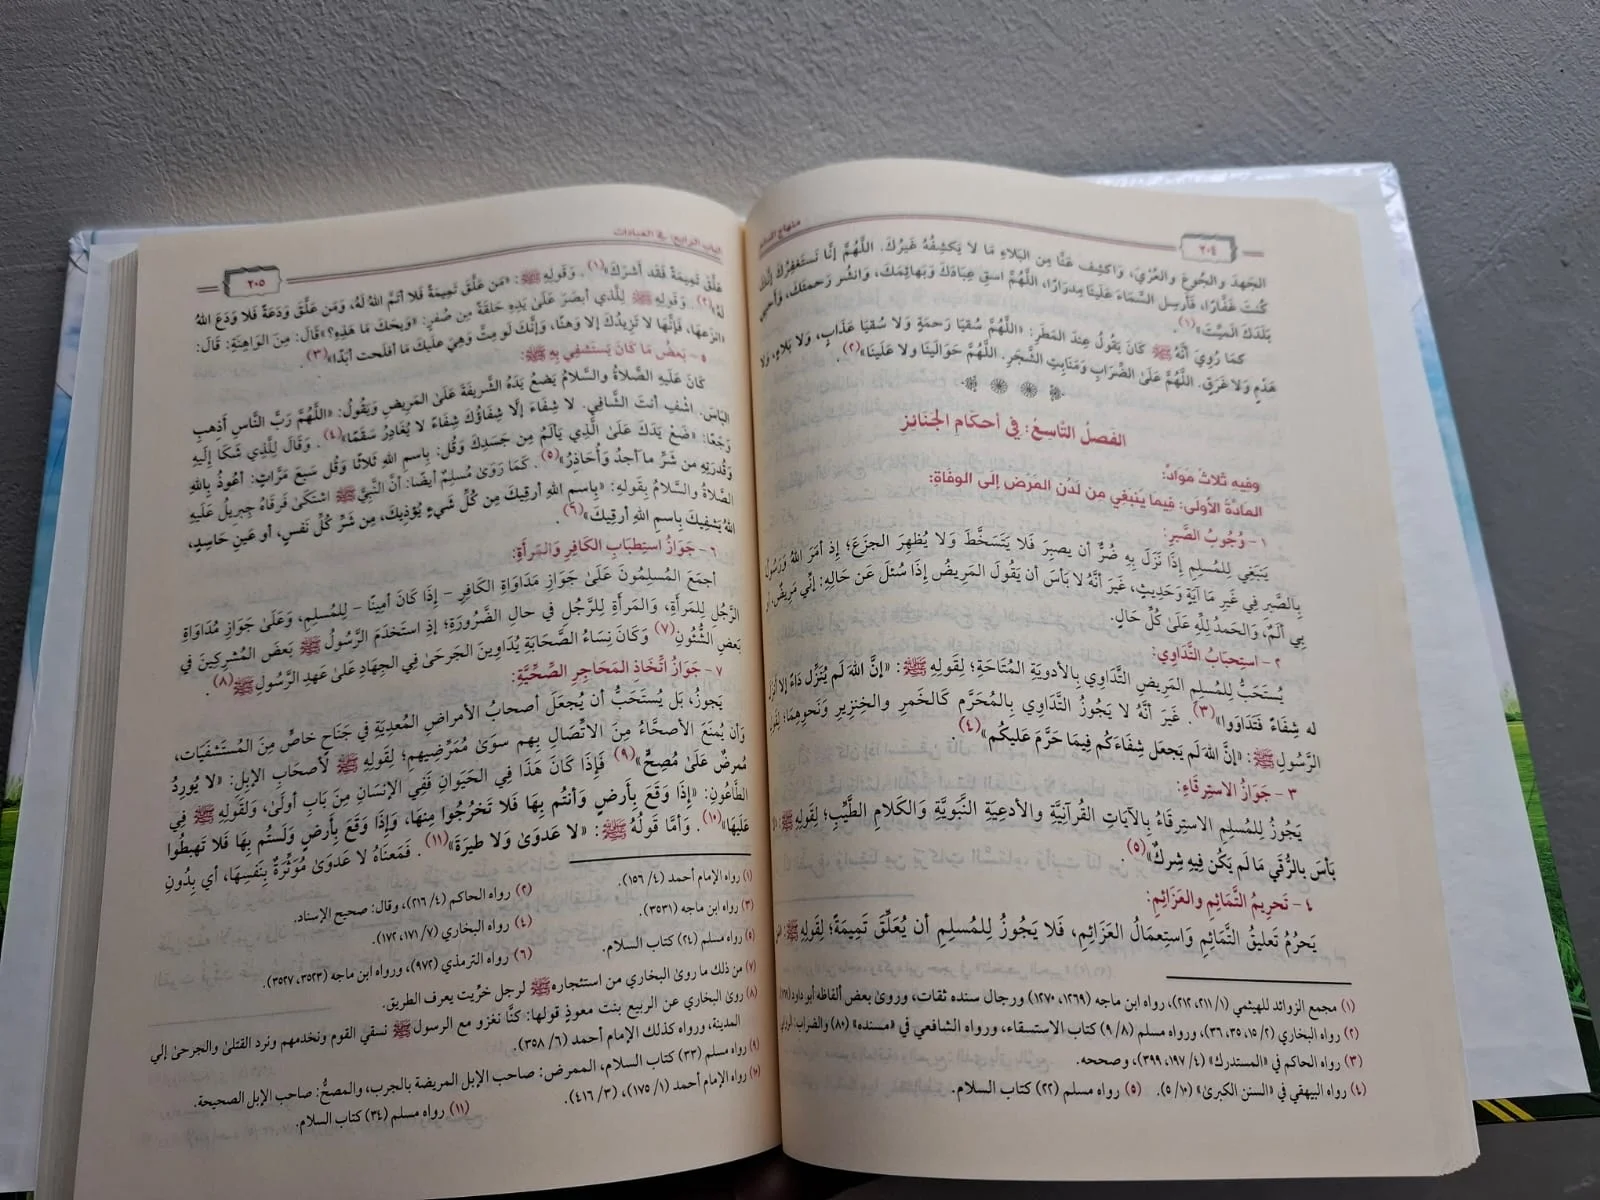 ٢٠٤
منهاج المسلم
الجَهدَ والجُوعَ والعُرْيَ، وَاكشِف عَنَّا مِنَ البَلَاءِ مَا لَا يَكشِفُهُ غَيرُكَ. اللَّهُمَّ إنَّا نَستَغفِرُكَ إنَّكَ
كُنتَ غَفَّارًا، فَأَرسِلِ السَّمَاءَ عَلَينَا مِدرَارًا، اللَّهُمَّ اسقِ عِبَادَكَ وَبَهَائِمَكَ، وَانشُر رَحمتَكَ، وَأَحيِ
بَلَدَكَ المَيِّتَ»(١).
كمَا رُوِيَ أنَّهُ ﷺ كَانَ يَقُولُ عِندَ المَطَرِ: «اللَّهُمَّ سُقيَا رَحمَةٍ وَلَا سُقيَا عَذَابٍ، وَلَا بَلَاءٍ، وَلَا
هَدْمٍ وَلَا غَرَقٍ. اللَّهُمَّ عَلَىٰ الضِّرَابِ وَمَنَابِتِ الشَّجَرِ. اللَّهُمَّ حَوَالَينَا ولا عَلَينَا»(٢).
الفَصلُ التَّاسِعُ: فِي أحكَامِ الجَنَائِزِ
وفيه ثلاثُ مَوَادَّ:
المَادَّةُ الأولَى: فِيمَا يَنبَغِي مِن لَدُنِ المَرَضِ إلَى الوفَاةِ:
١ - وُجُوبُ الصَّبرِ:
يَنبَغِي لِلمُسلِمِ إذَا نَزَلَ بِهِ ضُرٌّ أن يصبِرَ فَلَا يَتَسَخَّطَ وَلَا يُظهِرَ الجزَعَ؛ إذ أمَرَ اللهُ وَرَسُولُهُ
بِالصَّبرِ فِي غَيرِ مَا آيَةٍ وَحَدِيثٍ، غَيرَ أنَّهُ لا بَأسَ أن يَقُولَ المَرِيضُ إذَا سُئلَ عَن حَالِهِ: إنِّي مَرِيضٌ، أو
بِي ألَمٌ، وَالحَمدُ لِلَّهِ عَلَىٰ كُلِّ حَالٍ.
٢ - استِحبَابُ التَّدَاوِي:
يُستَحَبُّ لِلمُسلِمِ المَرِيضِ التَّدَاوِي بِالأدويَةِ المُتَاحَةِ؛ لِقَولِهِ ﷺ: «إنَّ اللهَ لَم يُنَزِّل دَاءً إلا أنزَلَ
له شِفَاءً فَتَدَاوَوا»(٣). غَيرَ أنَّهُ لَا يَجُوزُ التَّدَاوِي بِالمُحَرَّمِ كَالخَمرِ والخِنزِيرِ وَنَحوِهِمَا؛ لِقَولِ
الرَّسُولِ ﷺ: «إنَّ اللهَ لَم يَجعَل شِفَاءَكُم فِيمَا حَرَّمَ عَلَيكُم»(٤).
٣ - جَوَازُ الاستِرقَاءِ:
يَجُوزُ لِلمُسلِمِ الاستِرقَاءُ بِالآيَاتِ القُرآنِيَّةِ والأدعِيَةِ النَّبَوِيَّةِ وَالكَلَامِ الطَّيِّبِ؛ لِقَولِهِ ﷺ: «لا
بَأسَ بِالرُّقَىٰ مَا لَم يَكُن فِيهِ شِركٌ»(٥).
٤ - تَحرِيمُ التَّمَائِمِ والعَزَائِمِ:
يَحرُمُ تَعلِيقُ التَّمَائِمِ وَاستِعمَالُ العَزَائِمِ، فَلَا يَجُوزُ لِلمُسلِمِ أن يُعَلِّقَ تَمِيمَةً؛ لِقَولِهِ ﷺ:
(١) مجمع الزوائد للهيثمي (٢/ ٢١١، ٢١٢)، رواه ابن ماجه (١٢٦٩، ١٢٧٠) ورجال سنده ثقات، وروىٰ بعض ألفاظه أبو داود
(٢) رواه البخاري (٢/ ١٥، ٣٥، ٣٦)، ورواه مسلم (٨/ ٩) كتاب الاستسقاء، ورواه الشافعي في «مسنده» (٨٠) والضراب:
(٣) رواه الحاكم في «المستدرك» (٤/ ١٩٧، ٣٩٩)، وصححه.
(٤) رواه البيهقي في «السنن الكبرىٰ» (١٠/ ٥). (٥) رواه مسلم (٢٢) كتاب السلام.
الباب الرابع: في العبادات
٢٠٥
عَلَّقَ تَمِيمَةً فَقَد أشرَكَ»(١). وَقَولِهِ ﷺ: «مَن عَلَّقَ تَمِيمَةً فَلَا أتَمَّ اللهُ لَهُ، وَمَن عَلَّقَ وَدَعَةً فَلَا وَدَعَ اللهُ
لَهُ»(٢). وَقَولِهِ ﷺ لِلَّذِي أبصَرَ عَلَىٰ يَدِهِ حَلقَةً مِن صُفرٍ: «وَيحَكَ مَا هَذِهِ؟» قَالَ: مِنَ الوَاهِنَةِ: قَالَ:
«انزعهَا، فَإنَّهَا لَا تَزِيدُكَ إلا وَهنًا، وَإنَّكَ لَو مِتَّ وَهِيَ عَلَيكَ مَا أفلَحتَ أبَدًا»(٣).
٥ - بَعضُ مَا كَانَ يَستَشفِي بِهِ ﷺ:
كَانَ عَلَيهِ الصَّلَاةُ والسَّلَامُ يَضعُ يَدَهُ الشَّرِيفَةَ عَلَىٰ المَرِيضِ وَيَقُولُ: «اللَّهُمَّ رَبَّ النَّاسِ أَذهِبِ
البَاسَ. اشْفِ أنتَ الشَّافِي. لا شِفَاءَ إلَّا شِفَاؤُكَ شِفَاءً لَا يُغَادِرُ سَقَمًا»(٤). وَقَالَ لِلَّذِي شَكَا إلَيهِ
وَجَعًا: «ضَعْ يَدَكَ عَلَىٰ الَّذِي يَألَمُ مِن جَسَدِكَ وَقُل: بِاسمِ اللهِ ثَلَاثًا وَقُل سَبعَ مَرَّاتٍ: أعُوذُ بِاللهِ
وَقُدرَتِهِ من شَرِّ ما أجدُ وَأُحَاذِرُ»(٥). كَمَا رَوَىٰ مُسلِمٌ أيضًا: أنَّ النَّبِيَّ ﷺ اشتَكَىٰ فَرقَاهُ جِبرِيلُ عَلَيهِ
الصَّلَاةُ والسَّلامُ بِقَولِهِ: «بِاسمِ اللهِ أرقِيكَ مِن كُلِّ شَيءٍ يُؤذِيكَ، مِن شَرِّ كُلِّ نَفسٍ، أو عَينِ حَاسِدٍ،
اللهُ يَشفِيكَ بِاسمِ اللهِ أرقِيكَ»(٦).
٦ - جَوَازُ استِطبَابِ الكَافِرِ وَالمَرأةِ:
أجمَعَ المُسلِمُونَ عَلَىٰ جَوَازِ مَدَاوَاةِ الكَافِرِ - إذَا كَانَ أمِينًا - لِلمُسلِمِ، وَعَلَىٰ جَوَازِ مُدَاوَاةِ
الرَّجُلِ لِلمَرأةِ، وَالمَرأةِ لِلرَّجُلِ فِي حالِ الضَّرُورَةِ؛ إذِ استَخدَمَ الرَّسُولُ ﷺ بَعضَ المُشرِكِينَ فِي
بَعضِ الشُّئُونِ(٧) وَكَانَ نِسَاءُ الصَّحَابَةِ يُدَاوِينَ الجَرحَىٰ فِي الجِهَادِ عَلَىٰ عَهدِ الرَّسُولِ ﷺ(٨).
٧ - جَوَازُ اتِّخَاذِ المَحَاجِرِ الصِّحِّيَّةِ:
يَجُوزُ، بَل يُستَحَبُّ أن يُجعَلَ أصحَابُ الأمراضِ المُعدِيَةِ فِي جَنَاحٍ خاصٍّ مِنَ المُستَشفَيَاتِ،
وَأن يُمنَعَ الأصحَّاءُ مِنَ الاتِّصَالِ بِهم سوَىٰ مُمَرِّضِيهِم؛ لِقَولِهِ ﷺ لأصحَابِ الإبِلِ: «لَا يُورِدُ
مُمرِضٌ عَلَىٰ مُصِحٍّ»(٩) فَإذَا كَانَ هَذَا فِي الحَيَوَانِ فَفِي الإنسَانِ مِنَ بَابِ أولَىٰ، وَلقَولِهِ ﷺ فِي
الطَّاعُونِ: «إذَا وَقَعَ بِأرضٍ وَأنتُم بِهَا فَلَا تَخرُجُوا مِنهَا، وَإذَا وَقَعَ بِأرضٍ وَلَستُم بِهَا فَلَا تَهبِطُوا
عَلَيهَا»(١٠). وَأمَّا قَولُهُ ﷺ: «لَا عَدوَىٰ وَلَا طيرَةَ»(١١). فَمَعنَاهُ لَا عَدوَىٰ مُؤَثِّرَةٌ بِنَفسِهَا، أي بِدُونِ
(١) رواه الإمام أحمد (٤/ ١٥٦).
(٢) رواه الحاكم (٤/ ٢١٦)، وقال: صحيح الإسناد.
(٣) رواه ابن ماجه (٣٥٣١).
(٤) رواه البخاري (٧/ ١٧١، ١٧٢).
(٥) رواه مسلم (٢٤) كتاب السلام.
(٦) رواه الترمذي (٩٧٢)، ورواه ابن ماجه (٣٥٢٣، ٣٥٢٧).
(٧) من ذلك ما روىٰ البخاري من استئجاره ﷺ لرجل خرِّيت يعرف الطريق.
(٨) روىٰ البخاري عن الربيع بنت معوذٍ قولها: كنَّا نغزو مع الرسول ﷺ نسقي القوم ونخدمهم ونرد القتلىٰ والجرحىٰ إلي
المدينة، ورواه كذلك الإمام أحمد (٦/ ٣٥٨).
(٩) رواه مسلم (٣٣) كتاب السلام، الممرض: صاحب الإبل المريضة بالجرب، والمصحُّ: صاحب الإبل الصحيحة.
(١٠) رواه الإمام أحمد (١/ ١٧٥)، (٣/ ٤١٦).
(١١) رواه مسلم (٣٤) كتاب السلام.